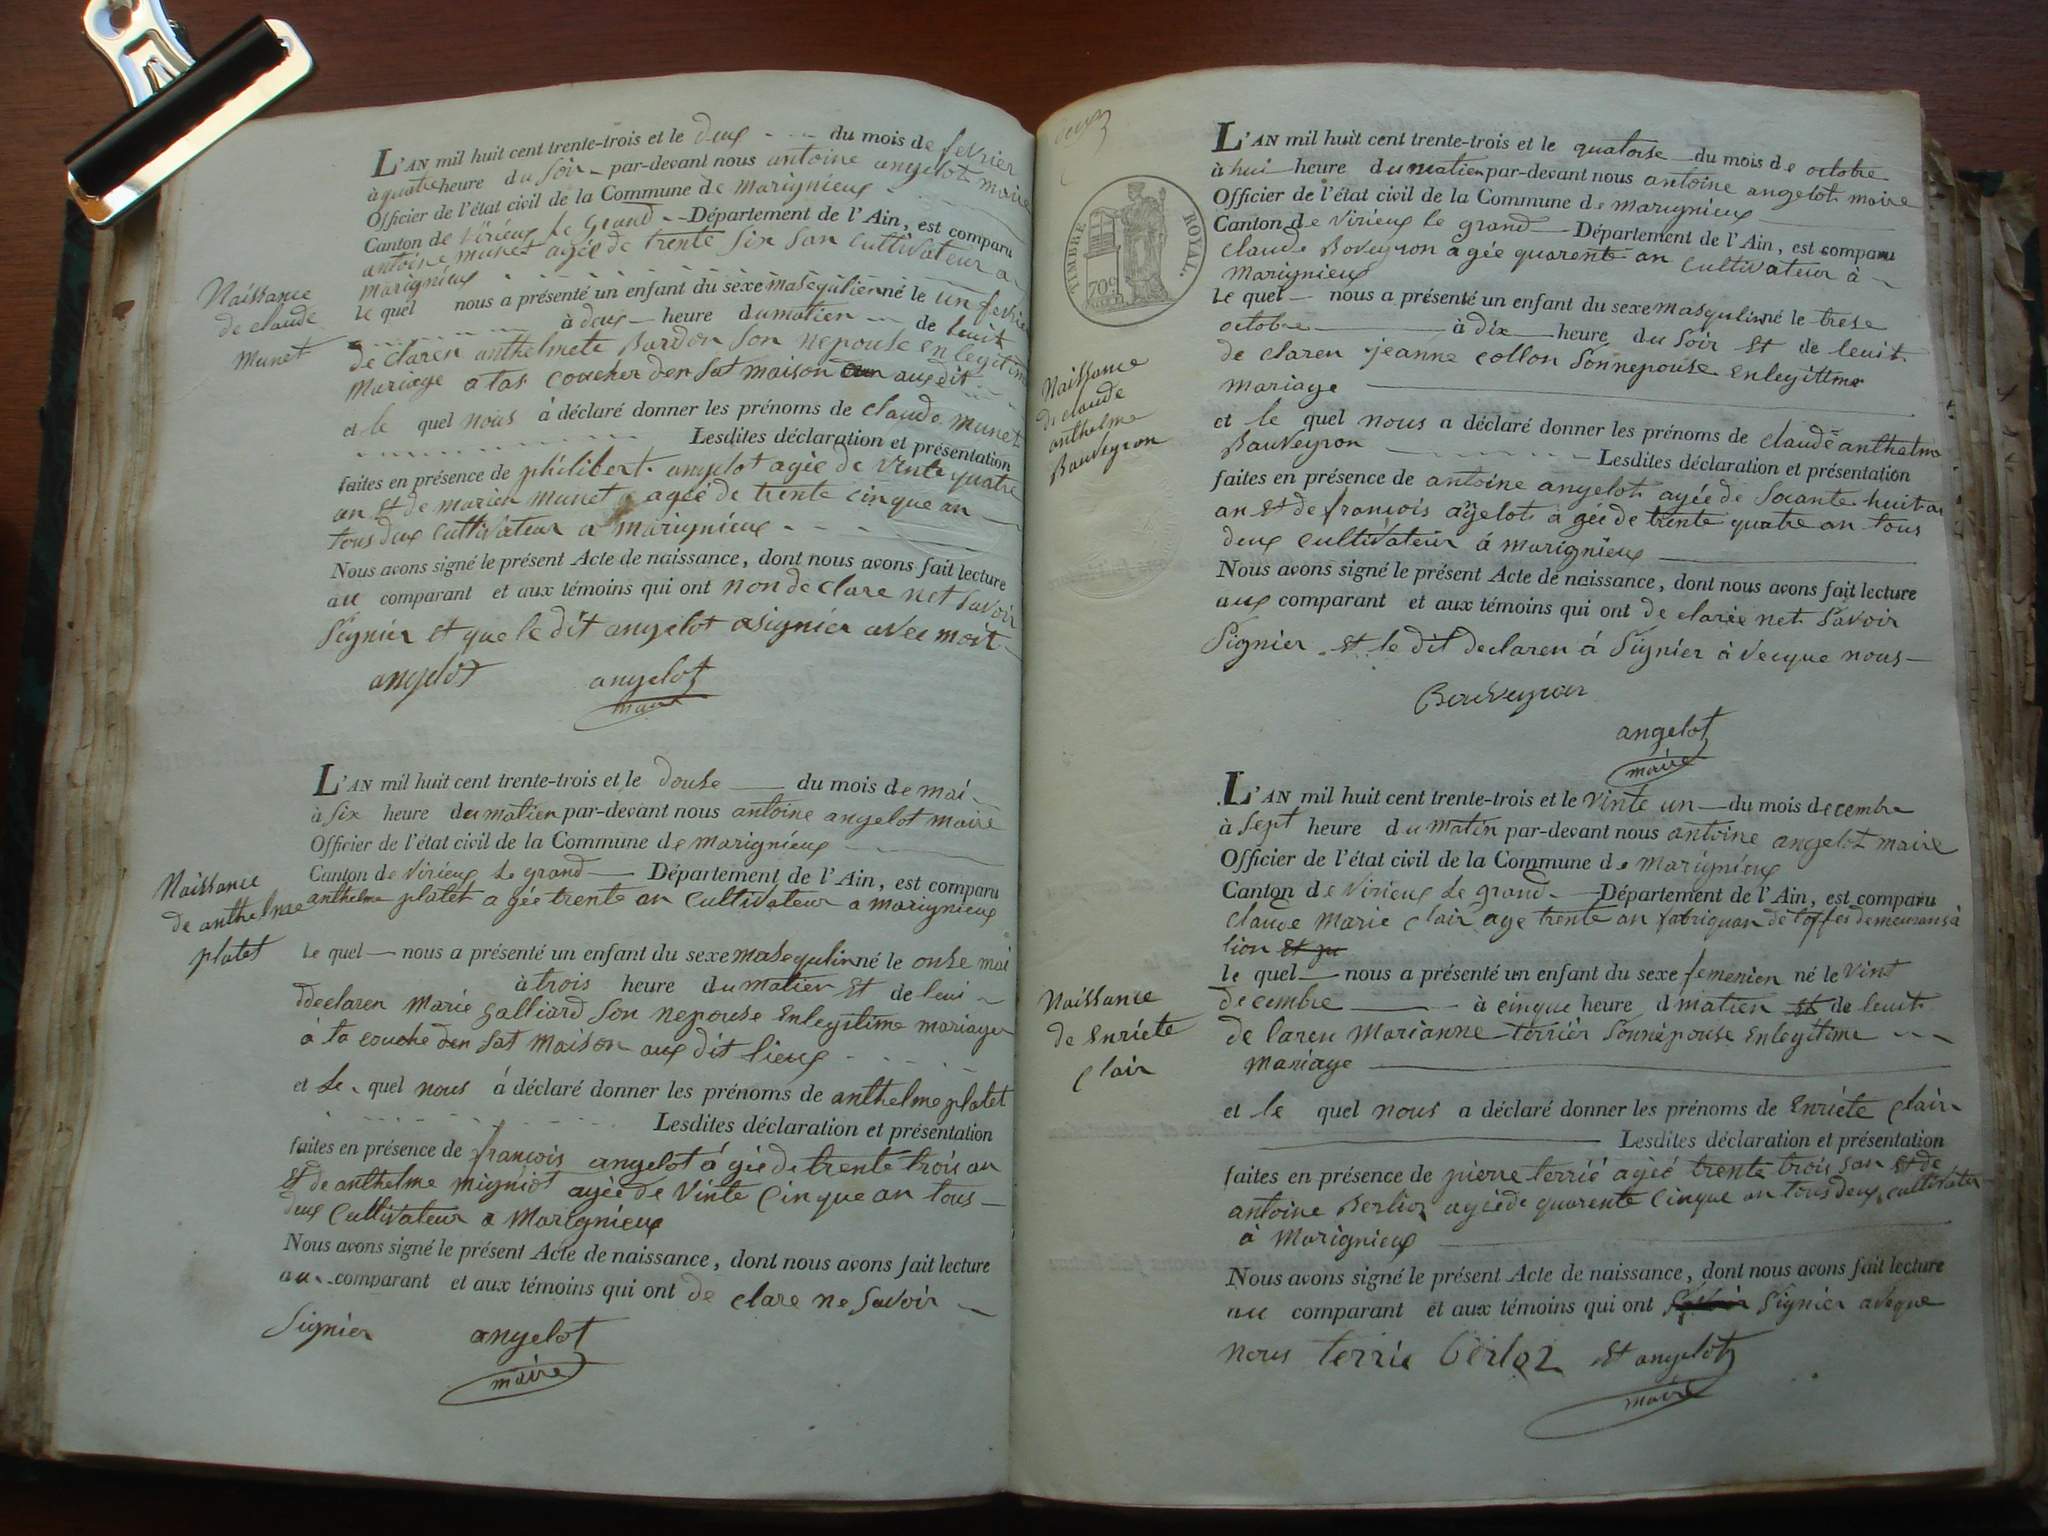 L'AN mil huit cent trente-trois et le deux du mois de fevrier
à quatre heure du Soir par-devant nous antoine angelot maire
Officier de l'état civil de la Commune de marignieux
Canton de Virieux le Grand Département de l'Ain, est comparu
antoine munet agée de trente six san cultivateur a
marignieux
Naissance
de claude
munet
le quel nous a présenté un enfant du sexe masequlien né le un fevrier
à deux heure du matien de leuit
de claren anthelmete Bardon Son nepouse en legitime
mariage a tas coucher den sat maison aux dit
et le quel nous à déclaré donner les prénoms de claude munet
Lesdites déclaration et présentation
faites en présence de philibert angelot agée de vente quatre
an Et de marien munet agée de trente cinque an
tous deux cultivateur a marignieux
Nous avons signé le présent Acte de naissance, dont nous avons fait lecture
au comparant et aux témoins qui ont non de clare net Savoir
Signier et que le dit angelot asignier avec
angelot angelot
maire
L'AN mil huit cent trente-trois et le douse du mois de mai
à six heure du matien par-devant nous antoine angelot maire
Officier de l'état civil de la Commune de marignieux
Canton de Virieux le grand Département de l'Ain, est comparu
anthelme platet agée trente an cultivateur a marignieux
Naissance
de anthelme
platet
le quel nous a présenté un enfant du sexe masequlin né le onse mai
à trois heure du matien Et de leui
ddeclaren Marie galliard Son nepouse Enlegitime mariager
à ta couche den sat maison aux dit lieux
et le quel nous á déclaré donner les prénoms de anthelme platet
Lesdites déclaration et présentation
faites en présence de françois angelot á gée de trente trois an
Et de anthelme migniot agée de Vinte Cinque an tous
deux Cultivateur a Marignieux
Nous avons signé le présent Acte de naissance, dont nous avons fait lecture
au comparant et aux témoins qui ont de clare ne Savoir
Signier angelot
maire
TIMBRE ROYAL.
70c
L'AN mil huit cent trente-trois et le quatorse du mois de octobre
à hui heure du matien par-devant nous antoine angelot maire
Officier de l'état civil de la Commune de marignieux
Canton de Virieux le grand Département de l'Ain, est comparu
claude Boveyron agée quarente an cultivateur à
marignieux
le quel nous a présenté un enfant du sexe masqulin né le trese
octobre à dix heure du Soir Et de leuit
de claren jeanne collon Sonnepouse Enlegitime
mariage
Naissance
de claude
anthelme
Bauveyron
et le quel nous a déclaré donner les prénoms de claude anthelme
Bauveyron Lesdites déclaration et présentation
faites en présence de antoine angelot agée de Soxante huit an
an Et de françois agelot a gée de trente quatre an tous
deux cultivateur á marignieux
Nous avons signé le présent Acte de naissance, dont nous avons fait lecture
aux comparant et aux témoins qui ont de clarée net Savoir
Signier Et le dit declaren á Signier à vecque nous
Bouveyron
angelot
maire
L'AN mil huit cent trente-trois et le Vinte un du mois decembre
à Sept heure du matin par-devant nous antoine angelot maire
Officier de l'état civil de la Commune de marignieux
Canton de Virieux Le grand Département de l'Ain, est comparu
claude Marie clair age trente an fabriquan détoffes demeurans à
lion
le quel nous a présenté un enfant du sexe femenien né le Vint
decembre à cinque heure d matien Et de leuit
de laren Marianne terrier Sonnépouse Enlegitime
mariage
Naissance
de Enriete
clair
et le quel nous a déclaré donner les prénoms de Enriéte clair
Lesdites déclaration et présentation
faites en présence de pierre terrié agéé trente trois san Et de
antoine Berlioz agéede quarente cinque an tous deux cultivateur
à Marignieux
Nous avons signé le présent Acte de naissance, dont nous avons fait lecture
au comparant et aux témoins qui ont Signier aveque
nous terrie berloz Et angelot
maire